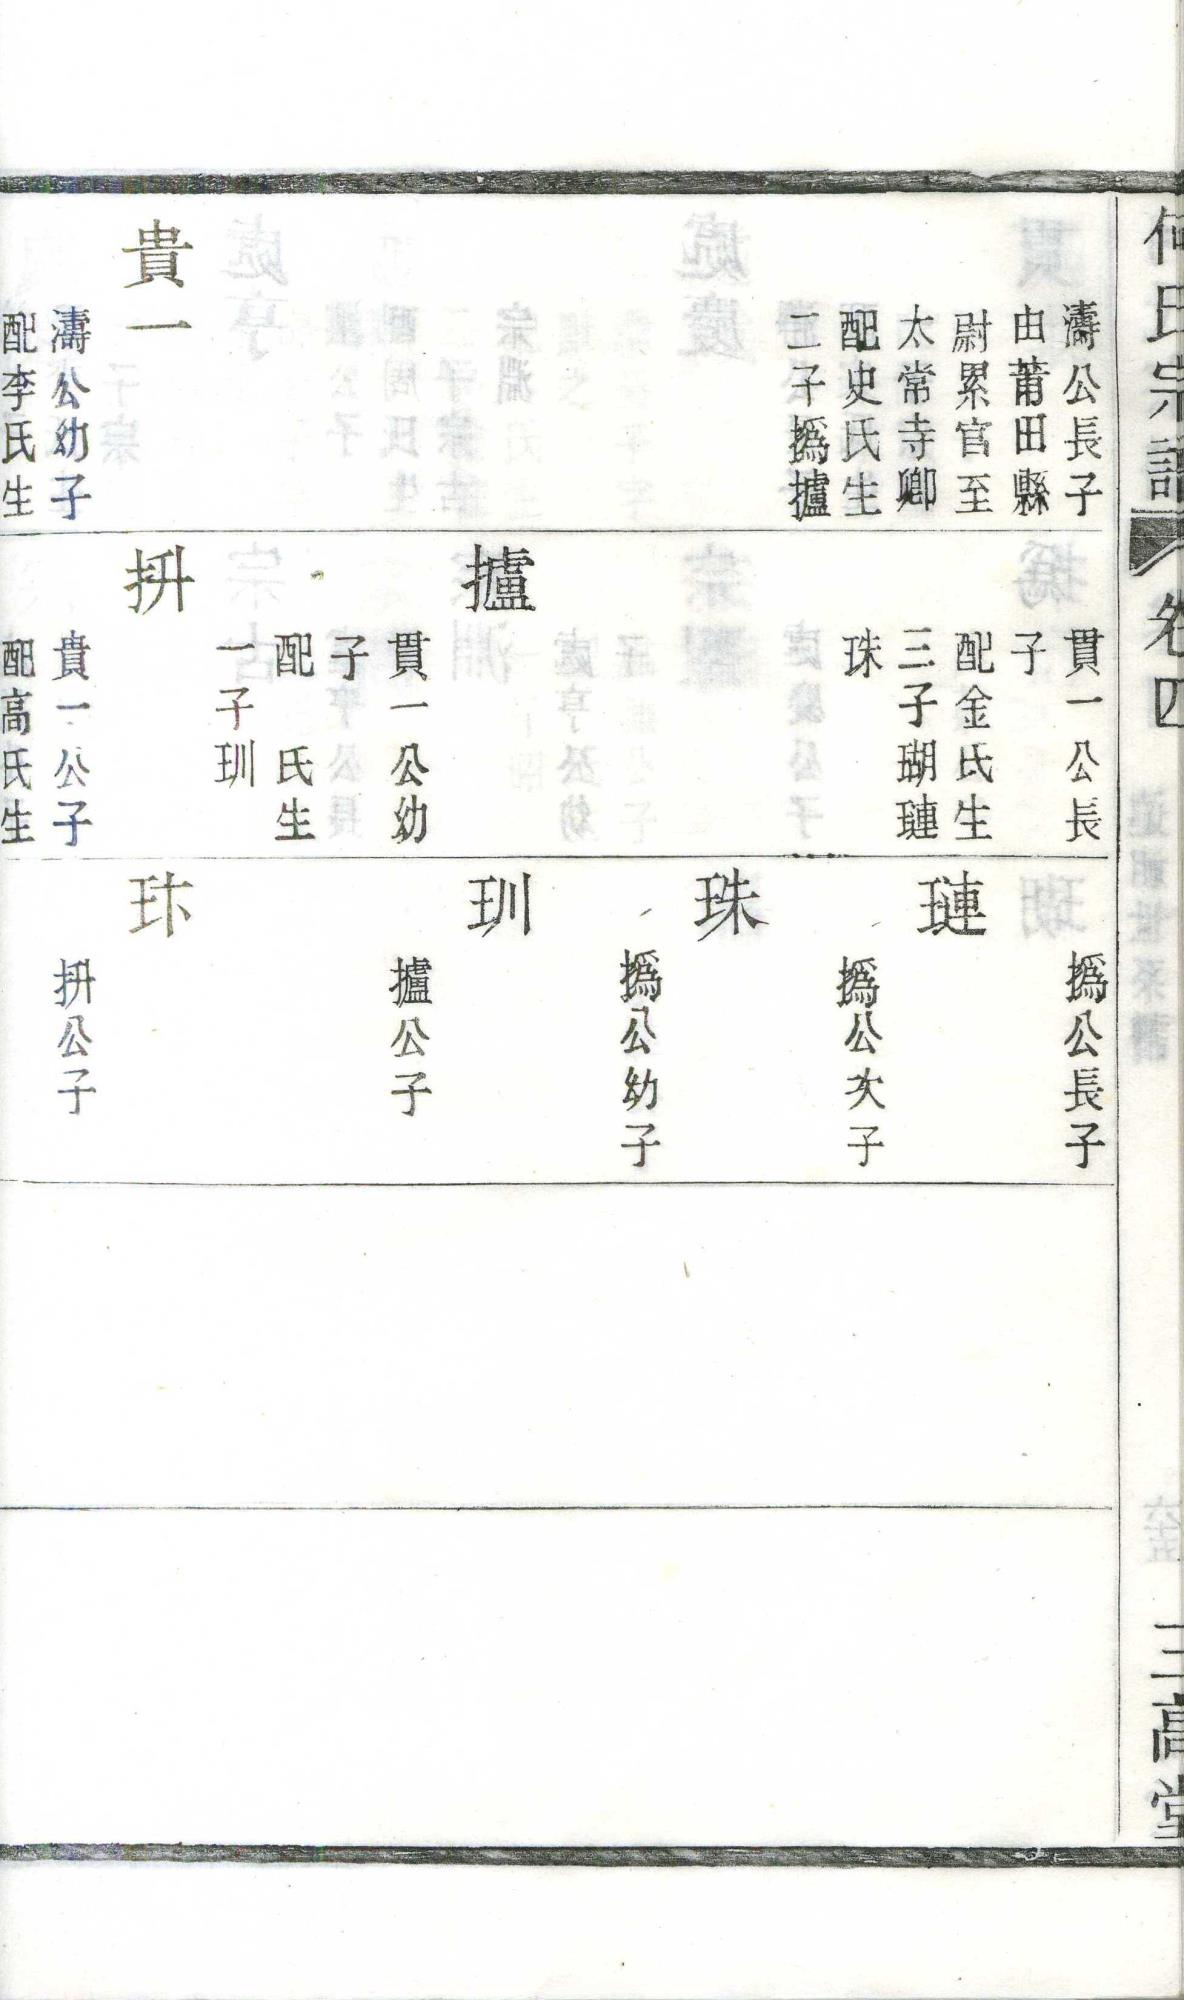 何氏宗譜
卷四
三高堂
濤公長子
由莆田縣
尉累官至
太常寺卿
配史氏生
二子撝攎
貴一
濤公幼子
配李氏生
貫一公長
子
配金氏生
三子瑚璉
珠
攎
貫一公幼
子
配 氏生
一子玔
拚
貴一公子
配高氏生
撝公長子
璉
撝公次子
珠
撝公幼子
玔
攎公子
玣
拚公子